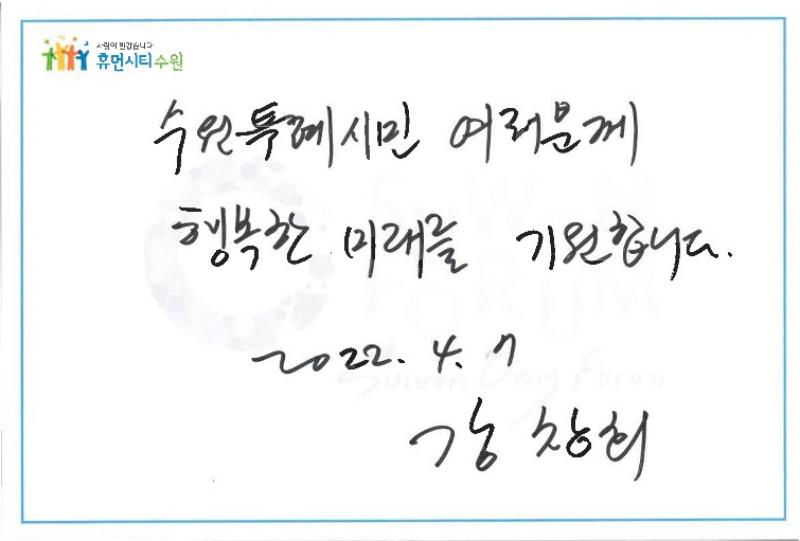 사람이 반갑습니다
휴먼시티 수원
수원특례시민 여러분께
행복한 미래를 기원합니다.
2022. 4. 7
강창희
SUWON
FORUM
Suwon Daily Forum